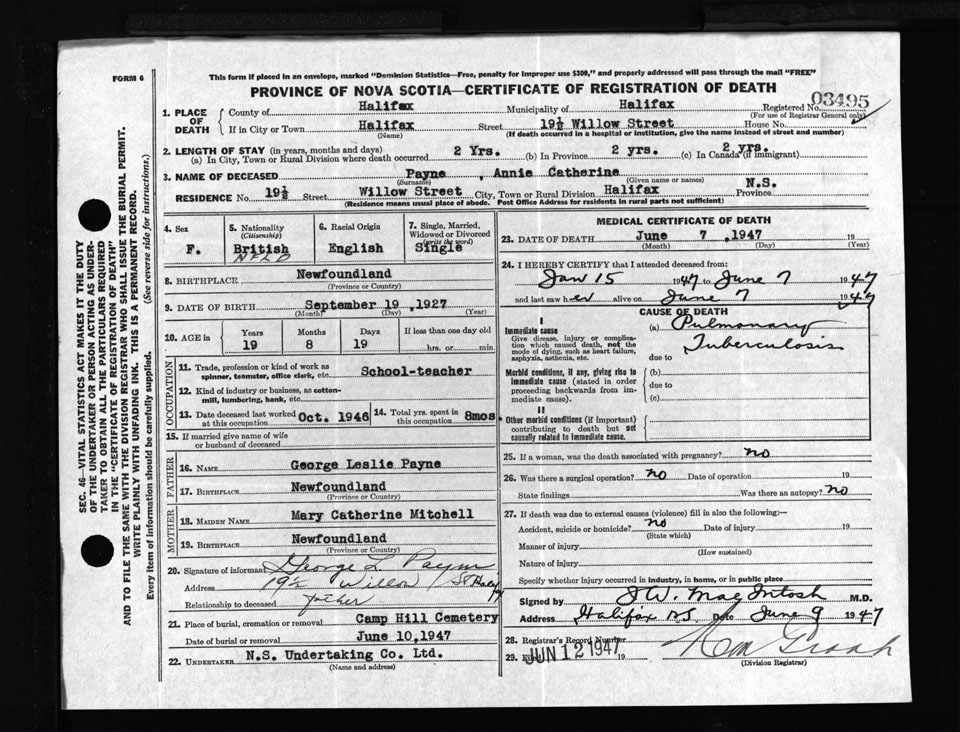 FORM 6
This form if placed in an envelope, marked "Dominion Statistics—Free, penalty for improper use $300," and properly addressed will pass through the mail "FREE"
PROVINCE OF NOVA SCOTIA—CERTIFICATE OF REGISTRATION OF DEATH
03495
1. PLACE OF DEATH
County of Halifax Municipality of Halifax Registered No.
(For use of Registrar General only)
If in City or Town Halifax Street 19½ Willow Street House No.
(Name) (If death occurred in a hospital or institution, give the name instead of street and number)
2. LENGTH OF STAY (in years, months and days)
(a) In City, Town or Rural Division where death occurred 2 Yrs. (b) In Province 2 yrs. (c) In Canada (if immigrant) 2 yrs.
3. NAME OF DECEASED Payne, Annie Catherine
(Surname) (Given name or names)
RESIDENCE No. 19½ Street Willow Street City, Town or Rural Division Halifax Province N.S.
(Residence means usual place of abode. Post Office Address for residents in rural parts not sufficient)
4. Sex
F.
5. Nationality
(Citizenship)
British
NFLD
6. Racial Origin
English
7. Single, Married, Widowed or Divorced
(write the word)
Single
8. BIRTHPLACE Newfoundland
(Province or Country)
9. DATE OF BIRTH September 19, 1927
(Month) (Day) (Year)
10. AGE in
Years Months Days If less than one day old
19 8 19 hrs. or min.
OCCUPATION
11. Trade, profession or kind of work as spinner, teamster, office clerk, etc. School-teacher
12. Kind of industry or business, as cotton-mill, lumbering, bank, etc.
13. Date deceased last worked at this occupation Oct. 1946
14. Total yrs. spent in this occupation 8mos.
15. If married give name of wife or husband of deceased
FATHER
16. NAME George Leslie Payne
17. BIRTHPLACE Newfoundland
(Province or Country)
MOTHER
18. MAIDEN NAME Mary Catherine Mitchell
19. BIRTHPLACE Newfoundland
(Province or Country)
20. Signature of informant George L Payne
Address 19½ Willow St Halifax
Relationship to deceased father
21. Place of burial, cremation or removal Camp Hill Cemetery
Date of burial or removal June 10, 1947
22. UNDERTAKER N.S. Undertaking Co. Ltd.
(Name and address)
MEDICAL CERTIFICATE OF DEATH
23. DATE OF DEATH June 7, 1947 19
(Month) (Day) (Year)
24. I HEREBY CERTIFY that I attended deceased from:
Jan 15 1947 to June 7 1947
and last saw her alive on June 7 1947
CAUSE OF DEATH
I
Immediate cause
Give disease, injury or complication which caused death, not the mode of dying, such as heart failure, asphyxia, asthenia, etc.
(a) Pulmonary
Tuberculosis
due to
Morbid conditions, if any, giving rise to immediate cause (stated in order proceeding backwards from immediate cause).
(b)
due to
(c)
II
Other morbid conditions (if important) contributing to death but not causally related to immediate cause.
25. If a woman, was the death associated with pregnancy? no
26. Was there a surgical operation? no Date of operation 19
State findings Was there an autopsy? no
27. If death was due to external causes (violence) fill in also the following:—
Accident, suicide or homicide? no Date of injury 19
(State which)
Manner of injury
(How sustained)
Nature of injury
Specify whether injury occurred in industry, in home, or in public place
Signed by J W. MacIntosh M.D.
Address Halifax N.S. Date June 9 1947
28. Registrar's Record Number
29. JUN 12 1947 19
(Division Registrar)
SEC. 46—VITAL STATISTICS ACT MAKES IT THE DUTY
OF THE UNDERTAKER OR PERSON ACTING AS UNDER-
TAKER TO OBTAIN ALL THE PARTICULARS REQUIRED
IN THE "CERTIFICATE OF REGISTRATION OF DEATH"
AND TO FILE THE SAME WITH THE DIVISION REGISTRAR WHO SHALL ISSUE THE BURIAL PERMIT.
WRITE PLAINLY WITH UNFADING INK. THIS IS A PERMANENT RECORD.
Every item of information should be carefully supplied. (See reverse side for instructions.)